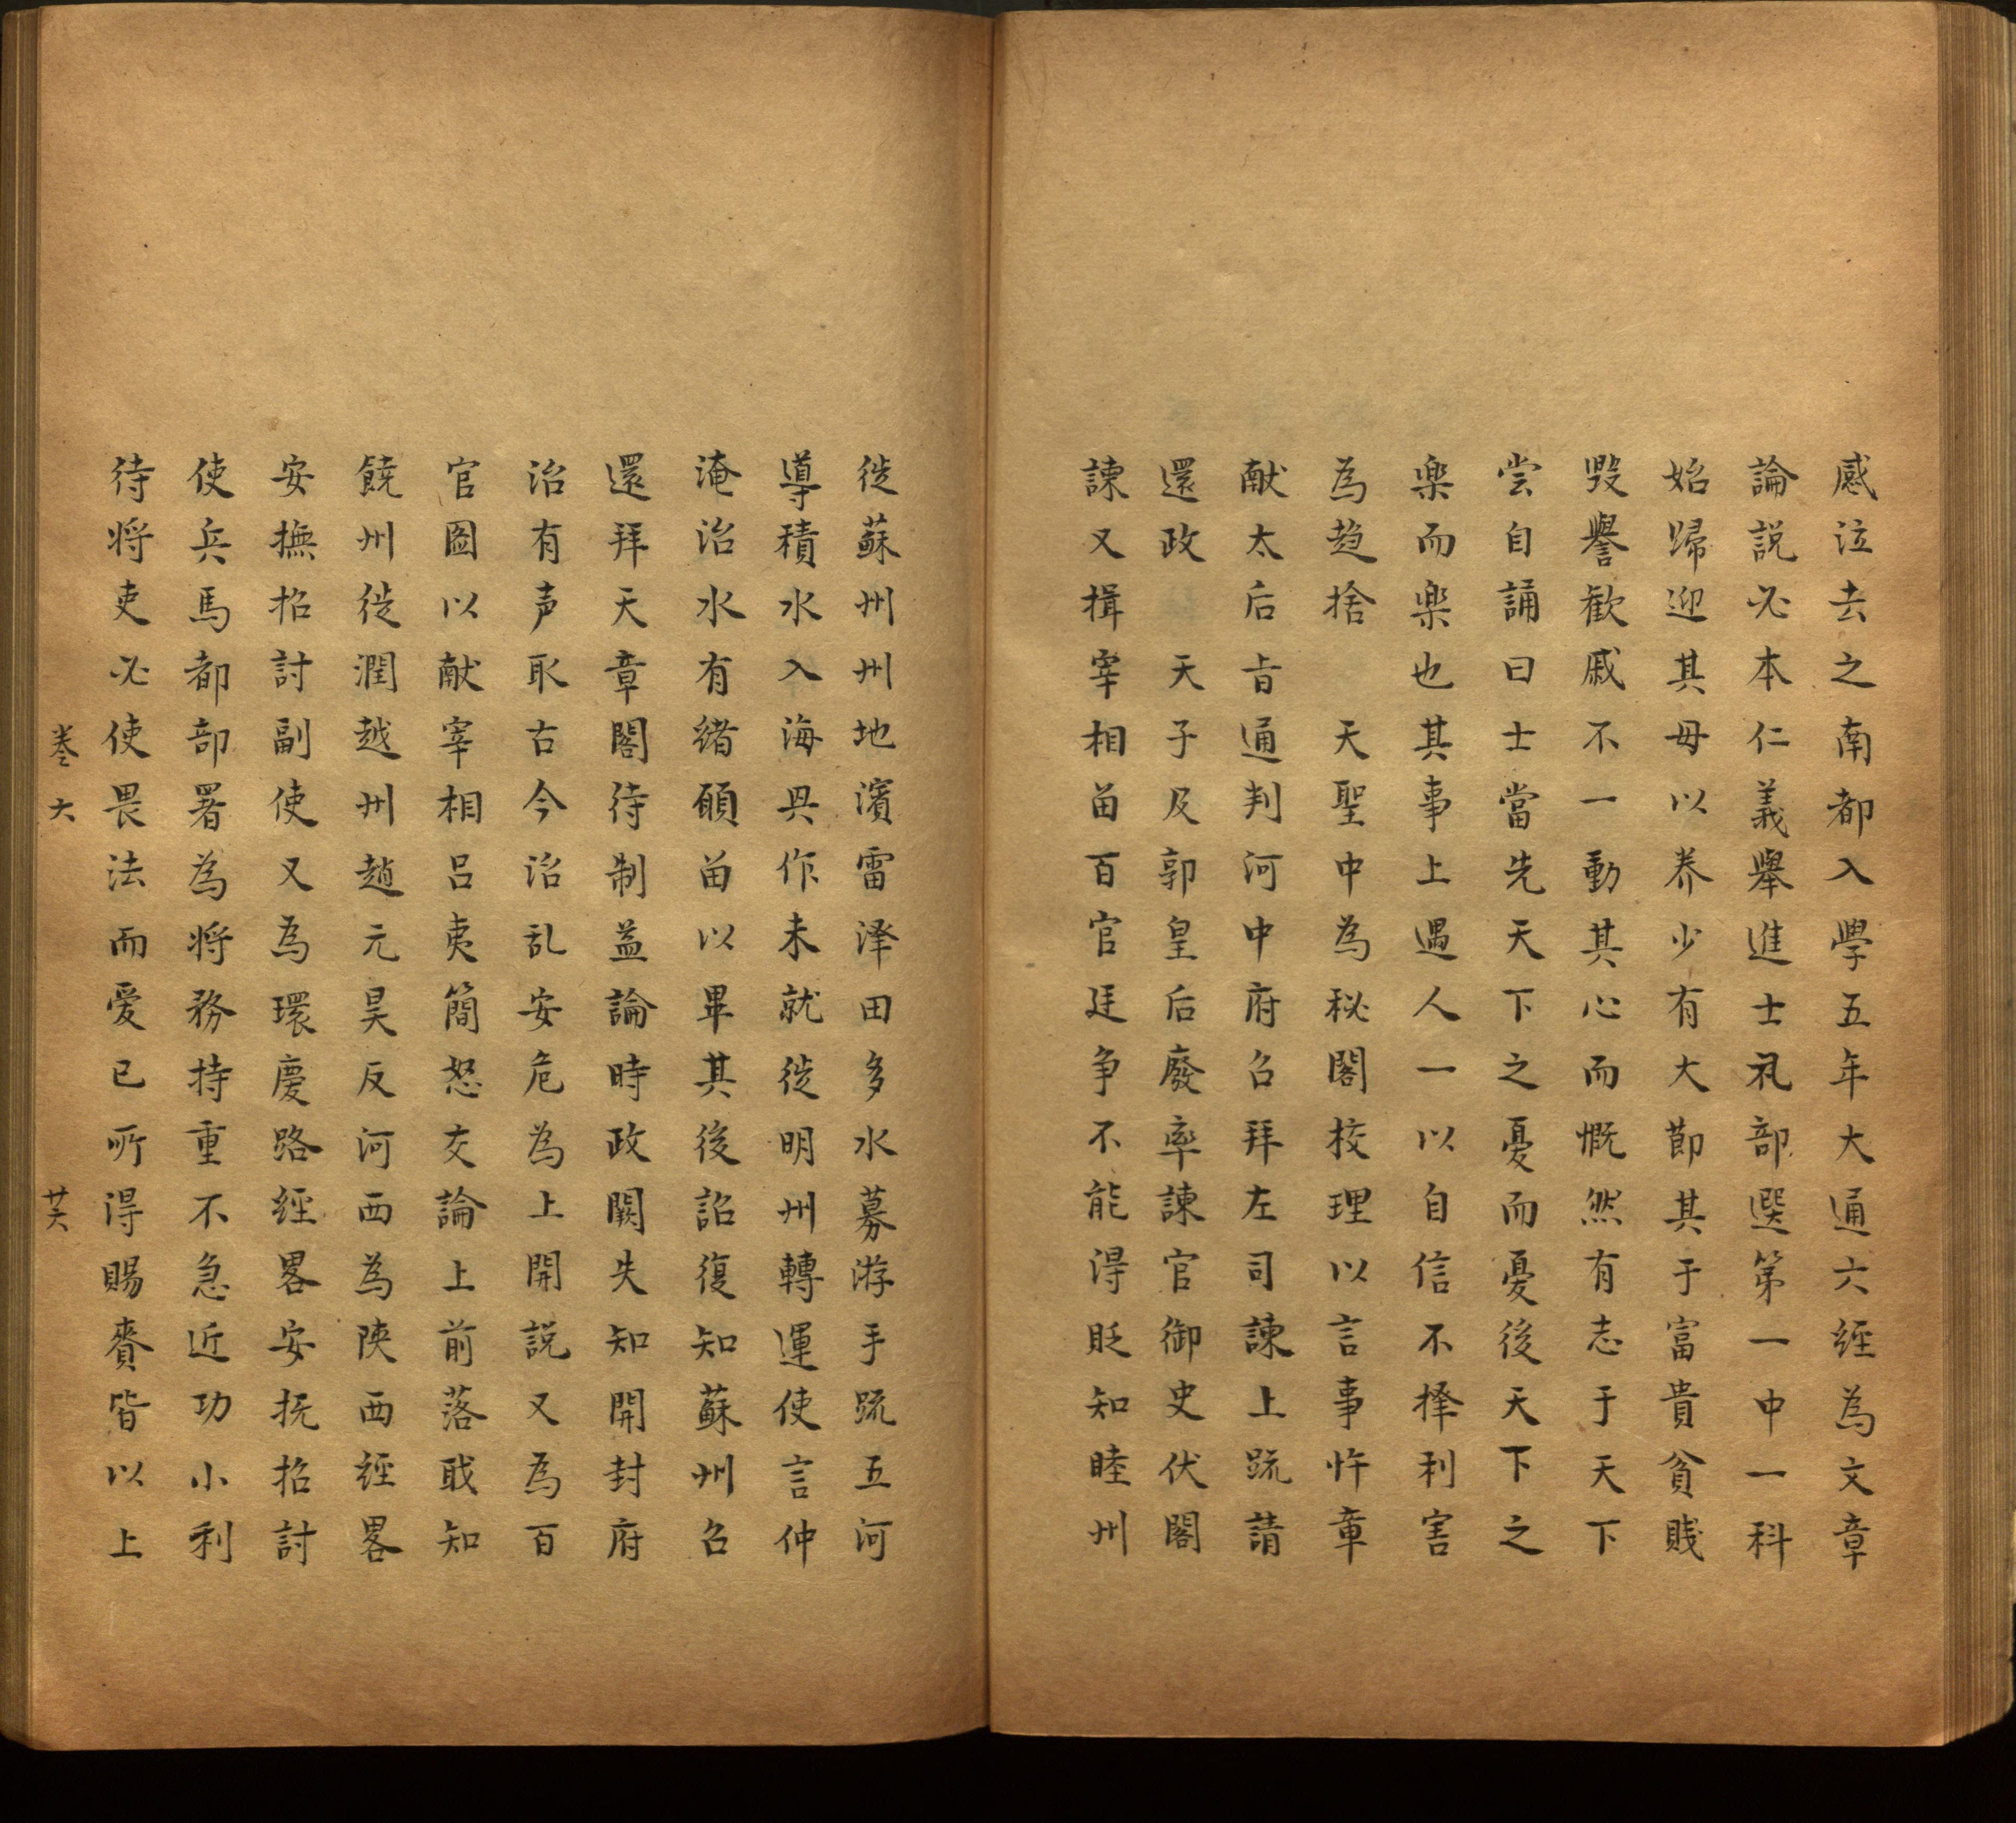 感泣去之南都入學五年大通六經為文章
論説必本仁義舉進士礼部選第一中一科
始歸迎其母以养少有大節其于富貴貧賤
毀譽歡戚不一動其心而慨然有志于天下
尝自誦曰士當先天下之憂而憂後天下之
楽而楽也其事上遇人一以自信不择利害
為趋捨　天聖中為秘閣校理以言事忤章
献太后旨通判河中府召拜左司諫上疏請
還政　天子及郭皇后廢率諫官御史伏閣
諫又揖宰相畄百官廷争不能得貶知睦州
徙蘇州州地濱雷泽田多水募游手疏五河
導積水入海興作未就徙明州轉運使言仲
淹治水有緒願畄以畢其後詔復知蘇州召
還拜天章閣待制益論時政闕失知開封府
治有声取古今治乱安危為上開説又為百
官圖以献宰相吕夷簡怒交論上前落戝知
饒州徙潤越州趙元昊反河西為陕西經畧
安撫招討副使又為環慶路經畧安抚招討
使兵馬都部署為将務持重不急近功小利
待将吏必使畏法而爱已所得賜賚皆以上
卷六
廿六